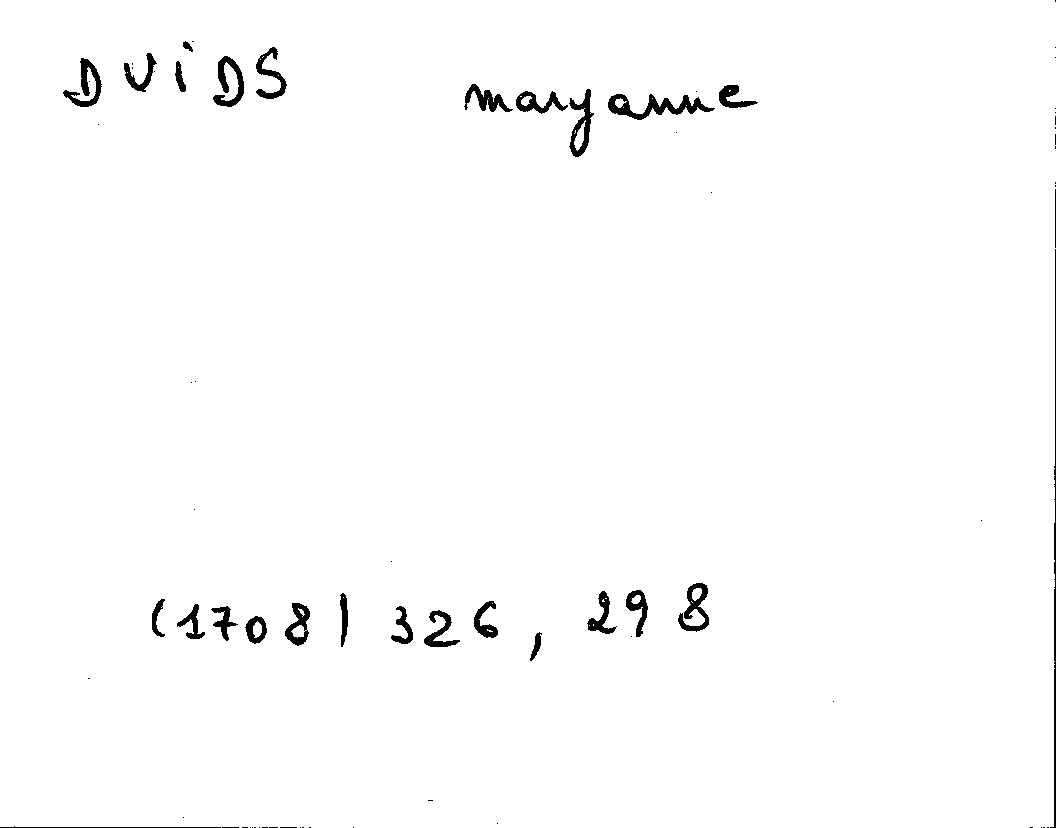 DViDS maryanne
(1708) 326, 298